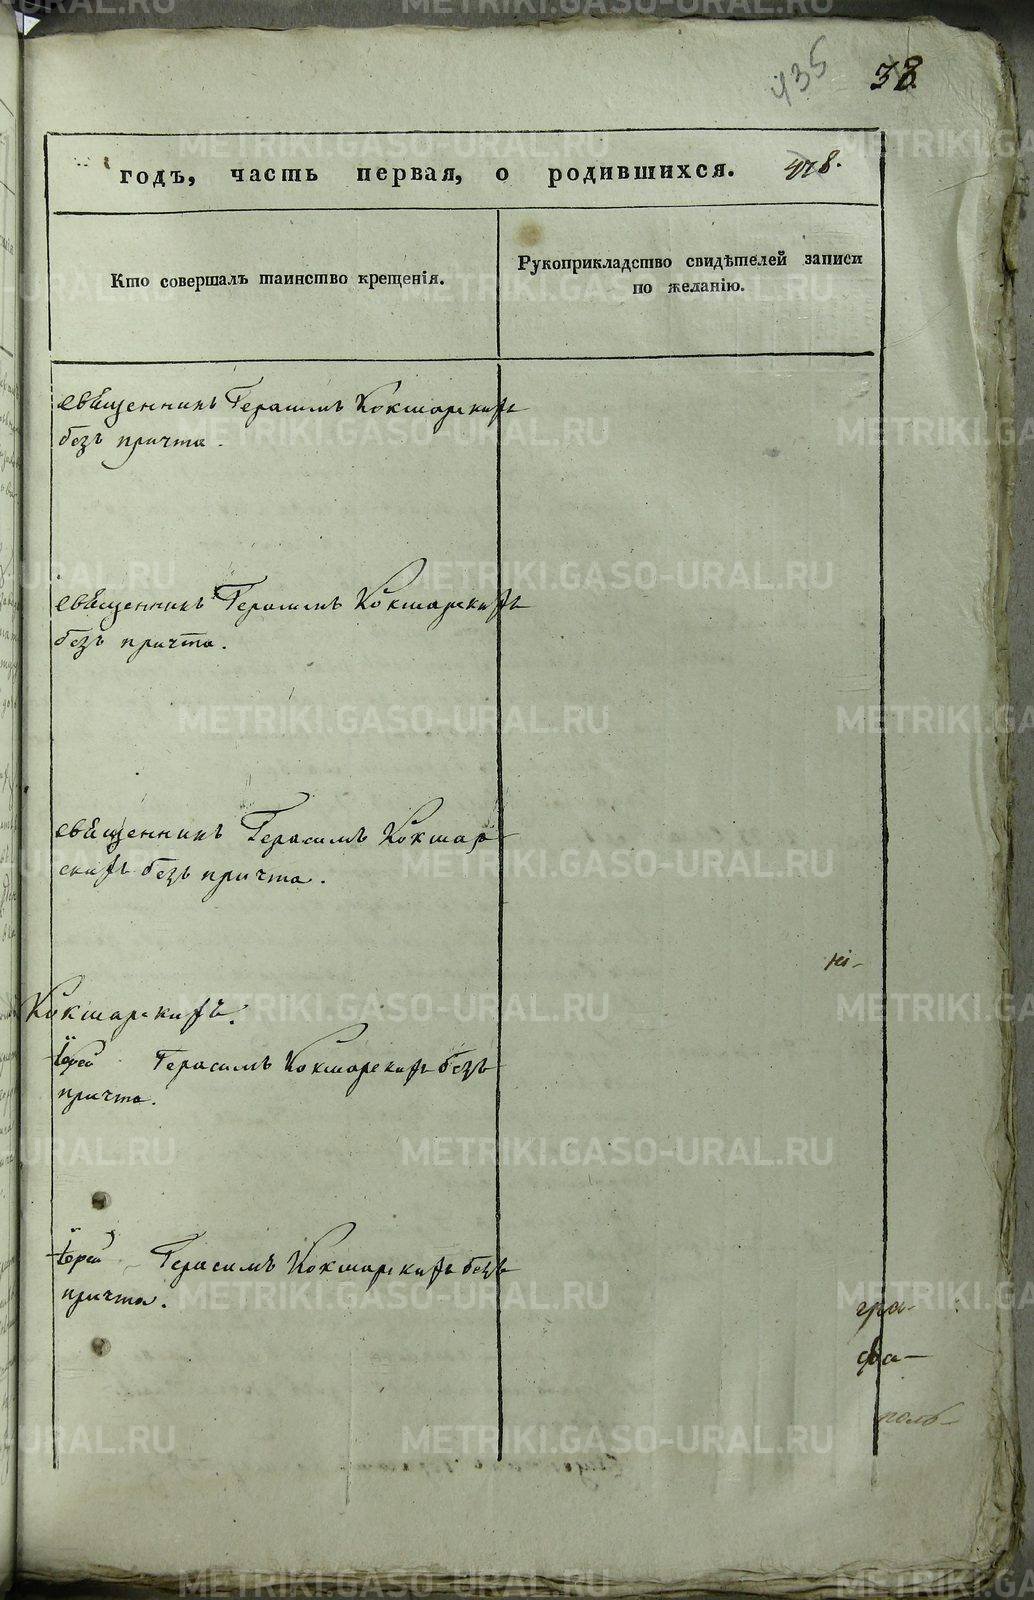 435 38
годъ, часть первая, о родившихся. 428.
Кто совершалъ таинство крещенія.
Рукоприкладство свидѣтелей записи
по желанію.
священникъ Герасимъ Кокшарскихъ
безъ причта.
священникъ Герасимъ Кокшарскихъ
безъ причта.
священникъ Герасимъ Кокшар
скихъ безъ причта.
Кокшарскихъ.
Іерей Герасимъ Кокшарскихъ безъ
причта.
Іерей Герасимъ Кокшарскихъ безъ
причта.
гра-
фа-
METRIKI.GASO-URAL.RU